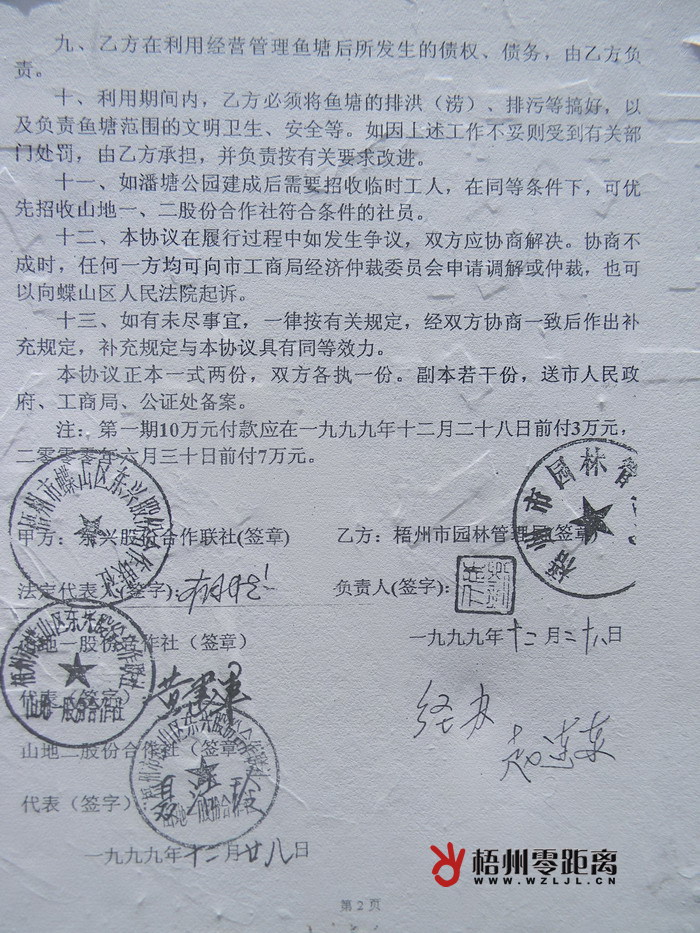 九、乙方在利用经营管理鱼塘后所发生的债权、债务，由乙方负
责。
十、利用期间内，乙方必须将鱼塘的排洪（涝）、排污等搞好，以
及负责鱼塘范围的文明卫生、安全等。如因上述工作不妥则受到有关部
门处罚，由乙方承担，并负责按有关要求改进。
十一、如潘塘公园建成后需要招收临时工人，在同等条件下，可优
先招收山地一、二股份合作社符合条件的社员。
十二、本协议在履行过程中如发生争议，双方应协商解决。协商不
成时，任何一方均可向市工商局经济仲裁委员会申请调解或仲裁，也可
以向蝶山区人民法院起诉。
十三、如有未尽事宜，一律按有关规定，经双方协商一致后作出补
充规定，补充规定与本协议具有同等效力。
本协议正本一式两份，双方各执一份。副本若干份，送市人民政
府、工商局、公证处备案。
注：第一期10万元付款应在一九九九年十二月二十八日前付3万元，
二零零零年六月三十日前付7万元。
梧州市蝶山区东兴股份合作联社
梧州市园林管
甲方：东兴股份合作联社(签章)
乙方：梧州市园林管理局(签章)
法定代表人(签字):
负责人(签字):
山地一股份合作社（签章）
一九九九年十二月二十八日
梧州市蝶山区东兴股份合作联社
山地一股份合作社
代表（签字）:
经办
山地二股份合作社（签章
梧州市蝶山区东兴股份合作联社
山地二股份合作社
代表（签字）:
一九九九年十二月廿八日
梧州零距离
WWW.WZLJL.CN
第2页